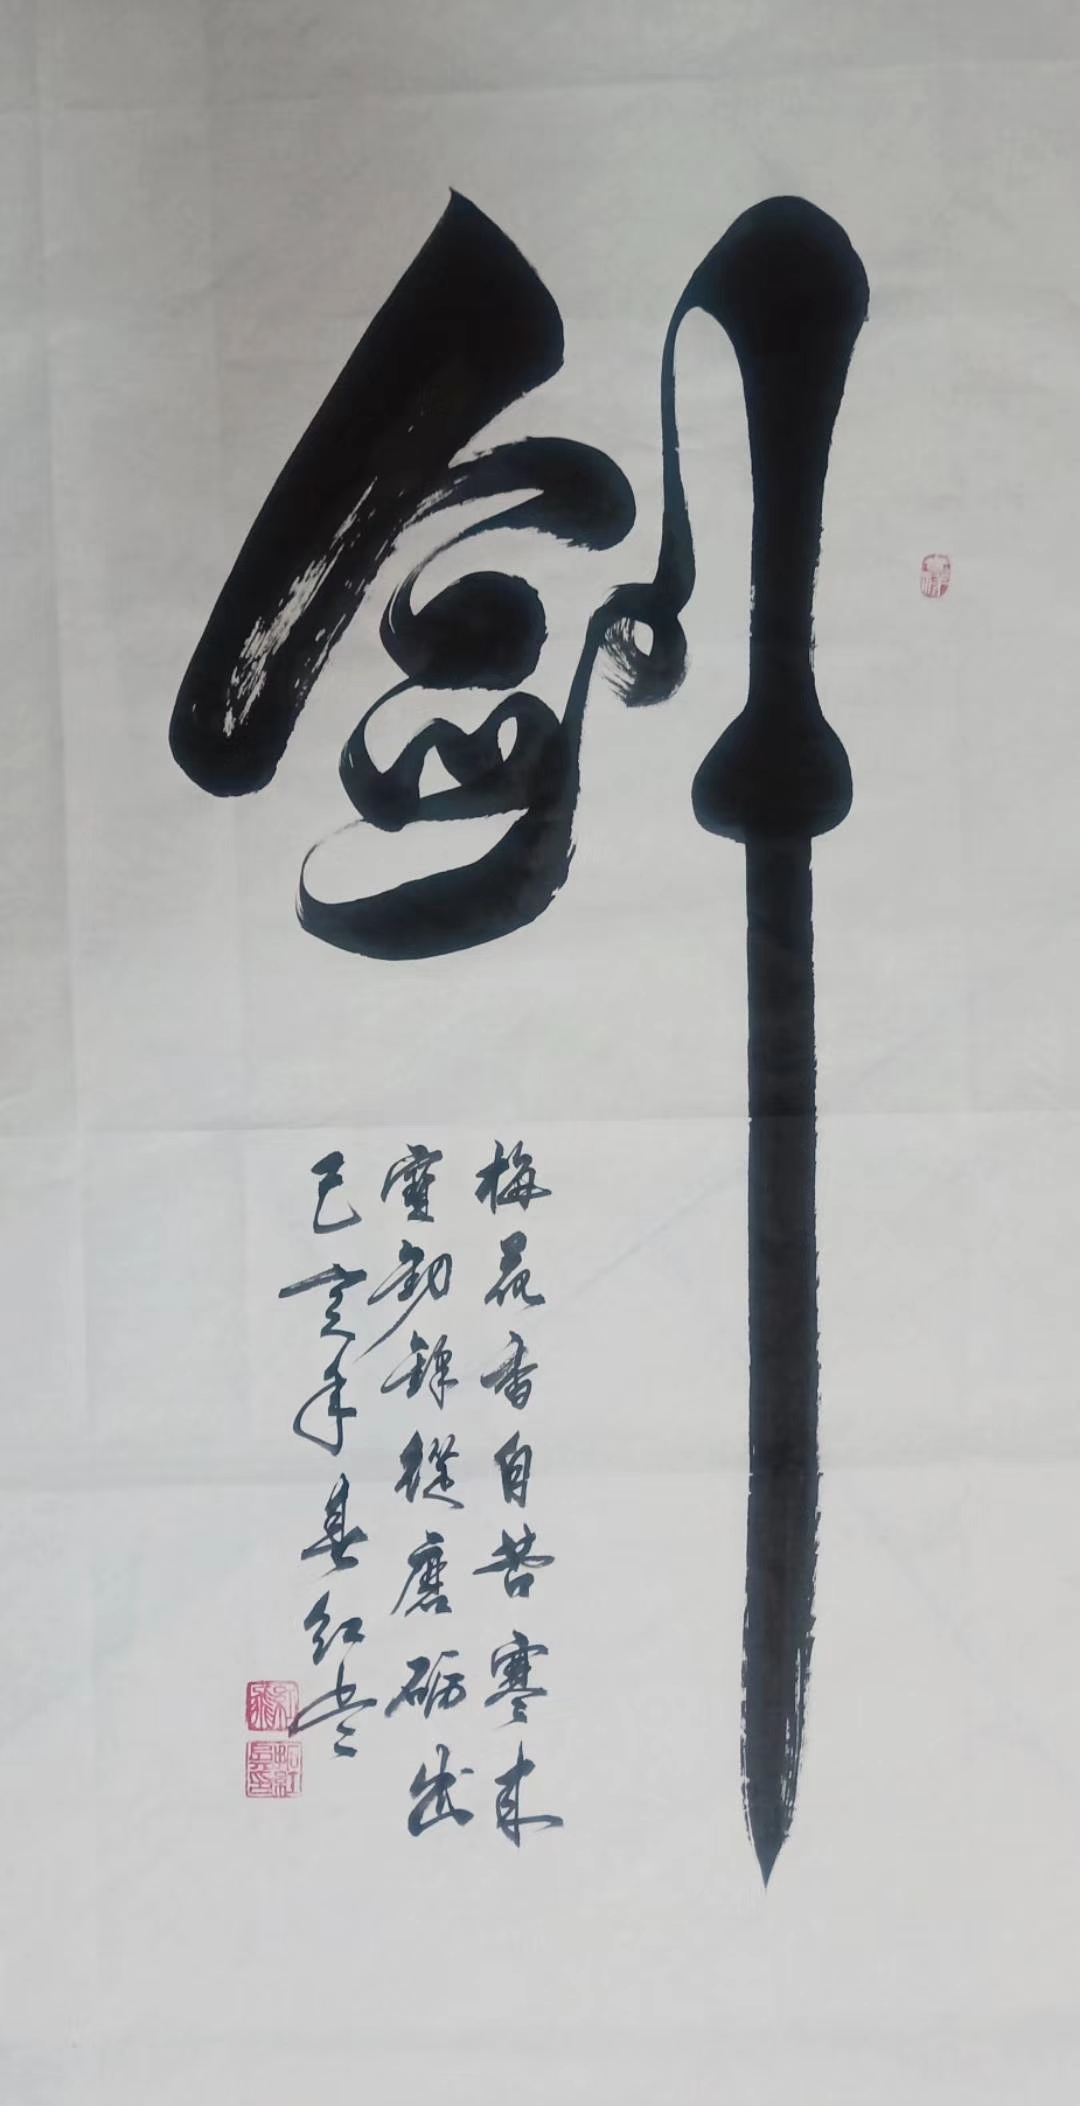 剑
梅花香自苦寒来
寶劍鋒從磨砺出
己亥年春红书